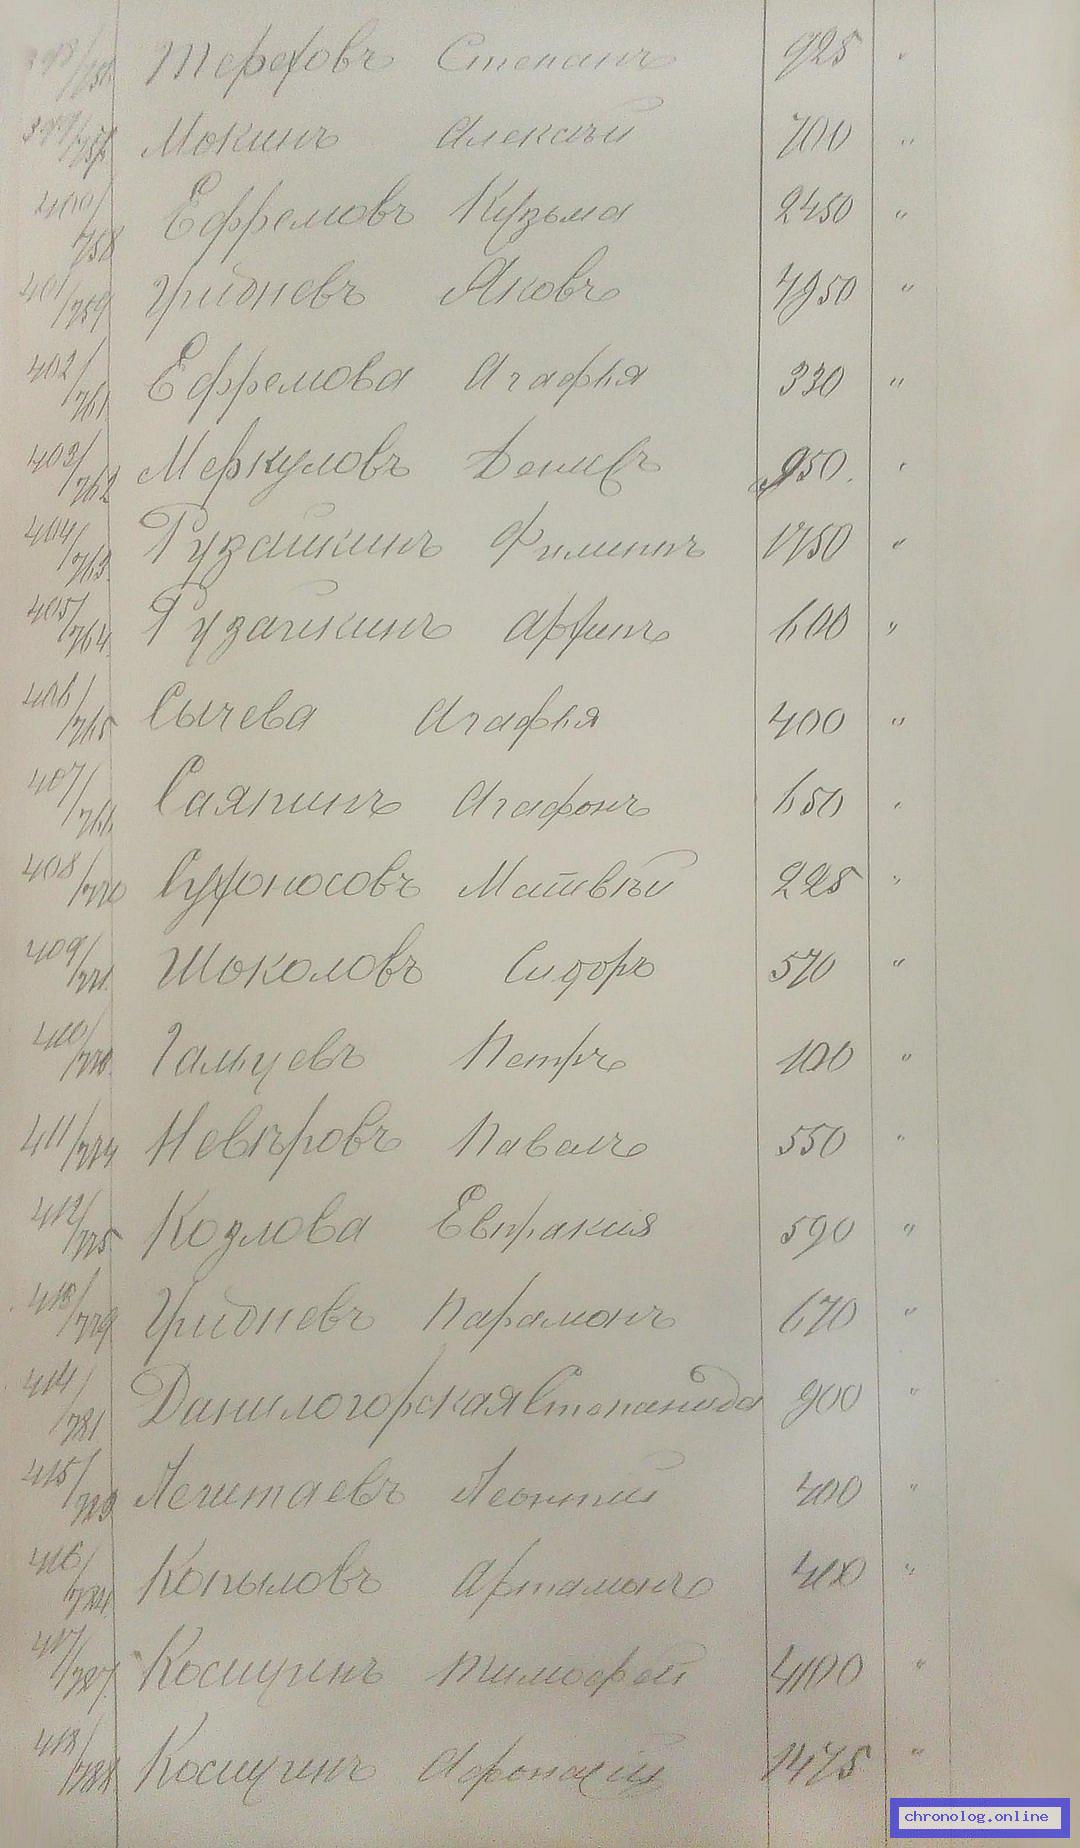 398/751 Терехов Степанъ 925 "
399/756 Мокинъ Алексѣй 700 "
400/758 Ефремовъ Кузьма 2450 "
401/759 Гридневъ Яковъ 4950 "
402/761 Ефремова Агафья 330 "
403/762 Меркуловъ Денисъ 950. "
404/763 Рузайкинъ Филиппъ 1750 "
405/764 Рузайкинъ Архипъ 600 "
406/765 Сычева Агафья 400 "
407/766 Саяпинъ Агафонъ 650 "
408/770 Сухоносовъ Матвѣй 225 "
409/771 Шоколовъ Сидоръ 570 "
410/773 Петръ 100 "
411/774 Невѣровъ Павелъ 550 "
412/775 Козлова Евпраксия 590 "
413/779 Гридневъ Парамонъ 670 "
414/781 Данилогорская Степанида 900 "
415/783 Леонтий 400 "
416/784 Копыловъ Артамонъ 400 "
417/787 Косыгинъ Тимофей 4100 "
418/788 Косыгинъ Афонасий 1475 "
chronolog.online